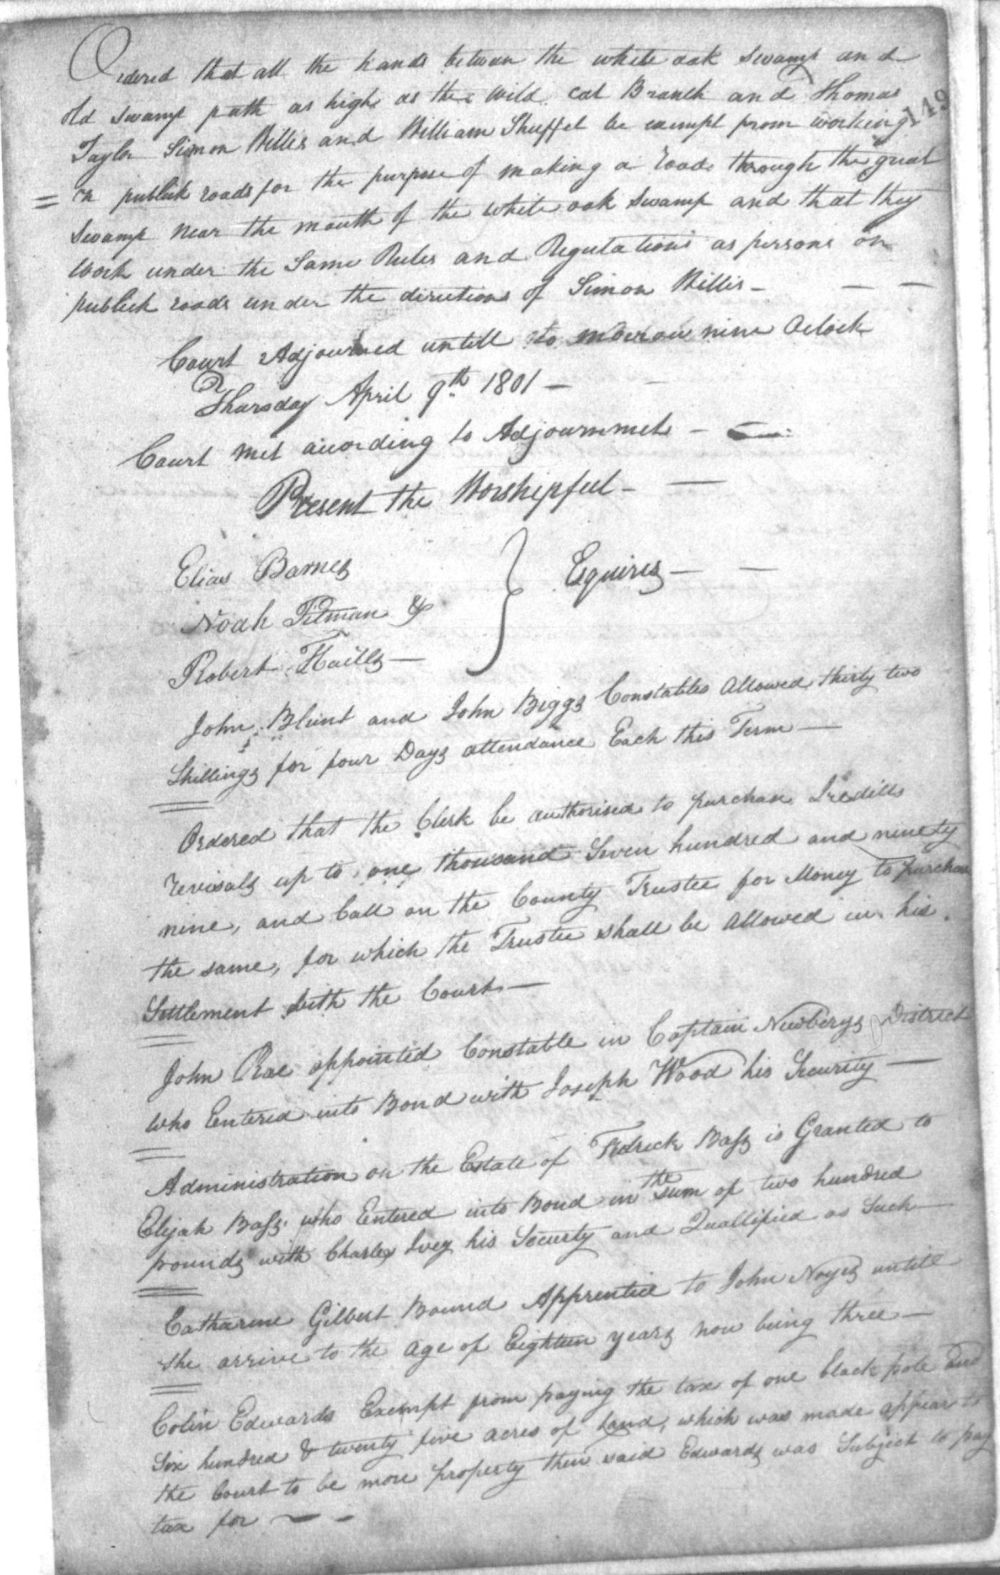 Ordered that all the hands between the white oak Swamp and
old swamp path as high as the wild cat Branch and Thomas
149
Taylor Simon Willis and William Shuffel be exempt from working
on publick roads for the purpose of making a road through the great
Swamp near the mouth of the white oak Swamp and that they
work under the Same Rules and Regulations as persons on
publick roads under the directions of Simon Willis —
Court Adjourned untill to morrow nine Oclock
Thursday April 9th 1801 —
Court met according to Adjournmet —
Present the Worshipful —
Elias Barnes
Noah Pitman & } Esquires —
Robert Hails —
John Blunt and John Biggs Constables Allowed thirty two
Shillings for four Days attendance Each this Term —
Ordered that the Clerk be authorised to purchase Iredills
revisals up to one thousand Seven hundred and ninety
nine, and Call on the County Trustee for Money to purchase
the same, for which the Trustee shall be Allowed in his
Settlement with the Court —
John Rae appointed Constable in Captain Newberys District
who Entered into Bond with Joseph Wood his Security —
Administration on the Estate of Fedrick Bass is Granted to
Elijah Bass who Entered into Bond in the Sum of two hundred
pounds with Charles Ivey his Security and Quallified as Such —
Catharine Gilbert Bound Apprentice to John Noyes untill
she arrive to the age of Eighteen years now being three —
Colin Edwards Exempt from paying the tax of one black pole and
Six hundred & twenty five acres of Land, which was made appear to
the Court to be more property then said Edwards was Subject to pay
tax for —